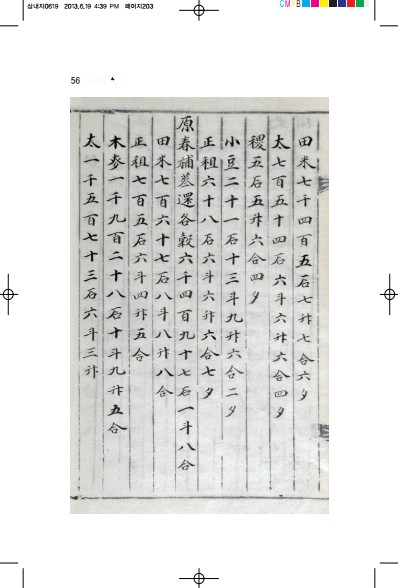 삼내지0619 2013.6.19 4:39 PM 페이지203
CM B
56
田米七千四百五石七升七合六夕
太七百五十四石六斗六升六合四夕
稷五石五升六合四夕
小豆二十一石十三斗九升六合二夕
正租六十八石六斗六升六合七夕
原春補蔘還各穀六千四百九十七石一斗八合
田米七百六十七石八斗八升八合
正租七百五石六斗四升五合
木麥一千九百二十八石十斗九升五合
太一千五百七十三石六斗三升